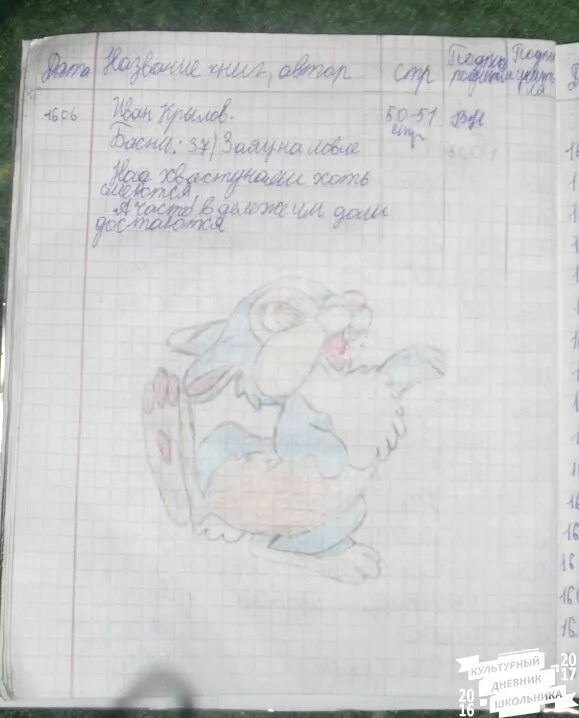 Дата Название книг, автор стр Подпись родителя Подпи учителя
1606 Иван Крылов. 50-51 стр
Басни: 37) Заяц на ловле
Над хвастунами хоть
смеются,
А часто в дележе им доли
достаются
16
16
16
16
16
КУЛЬТУРНЫЙ
ДНЕВНИК
ШКОЛЬНИКА
2016
2017